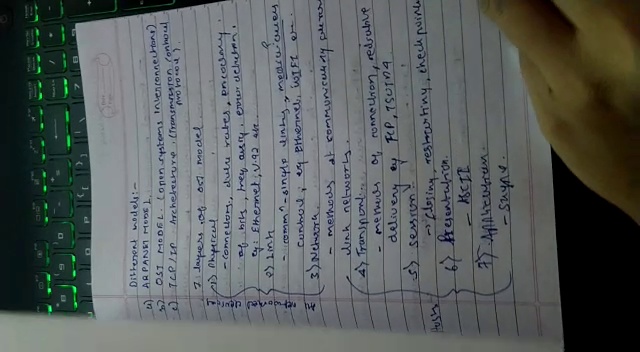 Different models:-
a) ARPANET MODEL.
b) OSI MODEL. (open systems Interconnections)
c) TCP/IP Architecture. (Transmission control protocol).
7 layers of OSI model
1) Physical
- connectors, data rates, encoding
of bits, error detection.
eg: Ethernet, V.92 etc.
2) Link
- commn - single link,
control, eg ethernet,
3) Network
- methods of communicating
link networks.
4) Transport
- methods of connection, reliable
delivery eg TCP,
5) session
- closing, restarting, checkpoint
Host
6) Presentation.
- ASCII
7) Application.